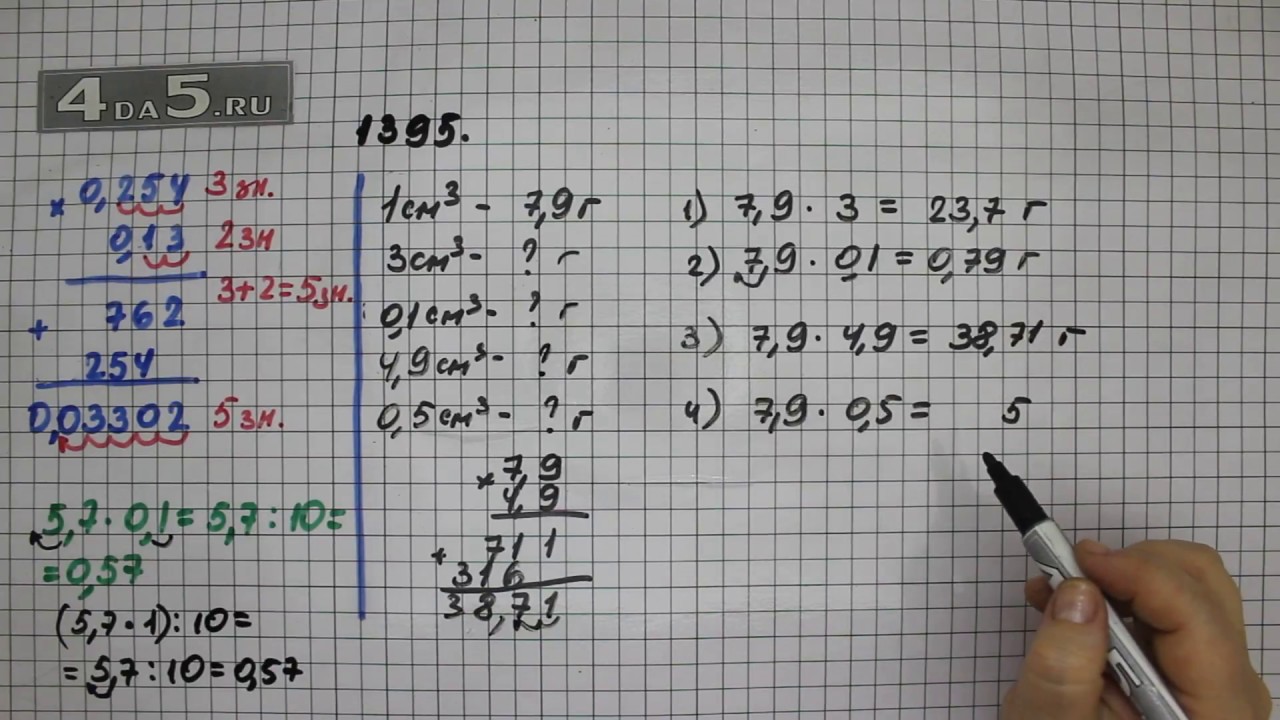 4DA5.RU
1395.
× 0,254 3 зн.
0,13 2зн
3+2=5зн.
+ 762
254
0,03302 5 зн.
5,7 · 0,1 = 5,7 : 10 =
= 0,57
(5,7 · 1) : 10 =
= 5,7 : 10 = 0,57
1см³ - 7,9 г
3см³ - ? г
0,1см³ - ? г
4,9см³ - ? г
0,5см³ - ? г
× 7,9
4,9
+ 711
316
38,71
1) 7,9 · 3 = 23,7 г
2) 7,9 · 0,1 = 0,79 г
3) 7,9 · 4,9 = 38,71 г
4) 7,9 · 0,5 = 5